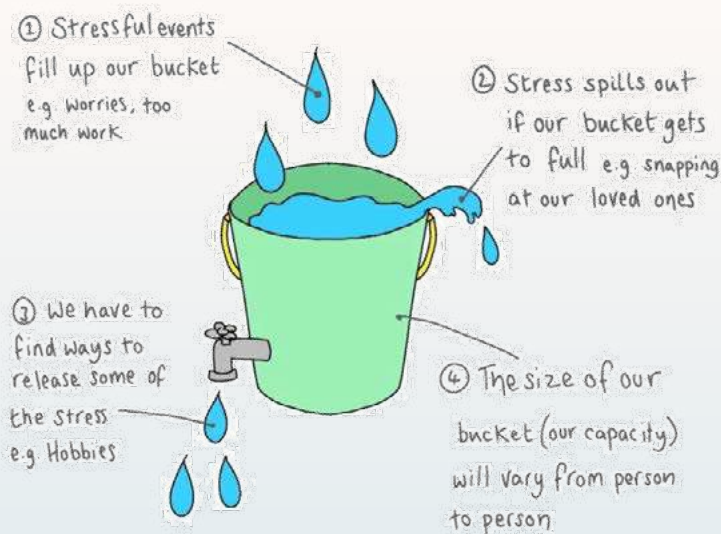 ① Stressful events
fill up our bucket
e.g worries, too
much work
② Stress spills out
if our bucket gets
to full e.g snapping
at our loved ones
③ We have to
find ways to
release some of
the stress
e.g Hobbies
④ The size of our
bucket (our capacity)
will vary from person
to person